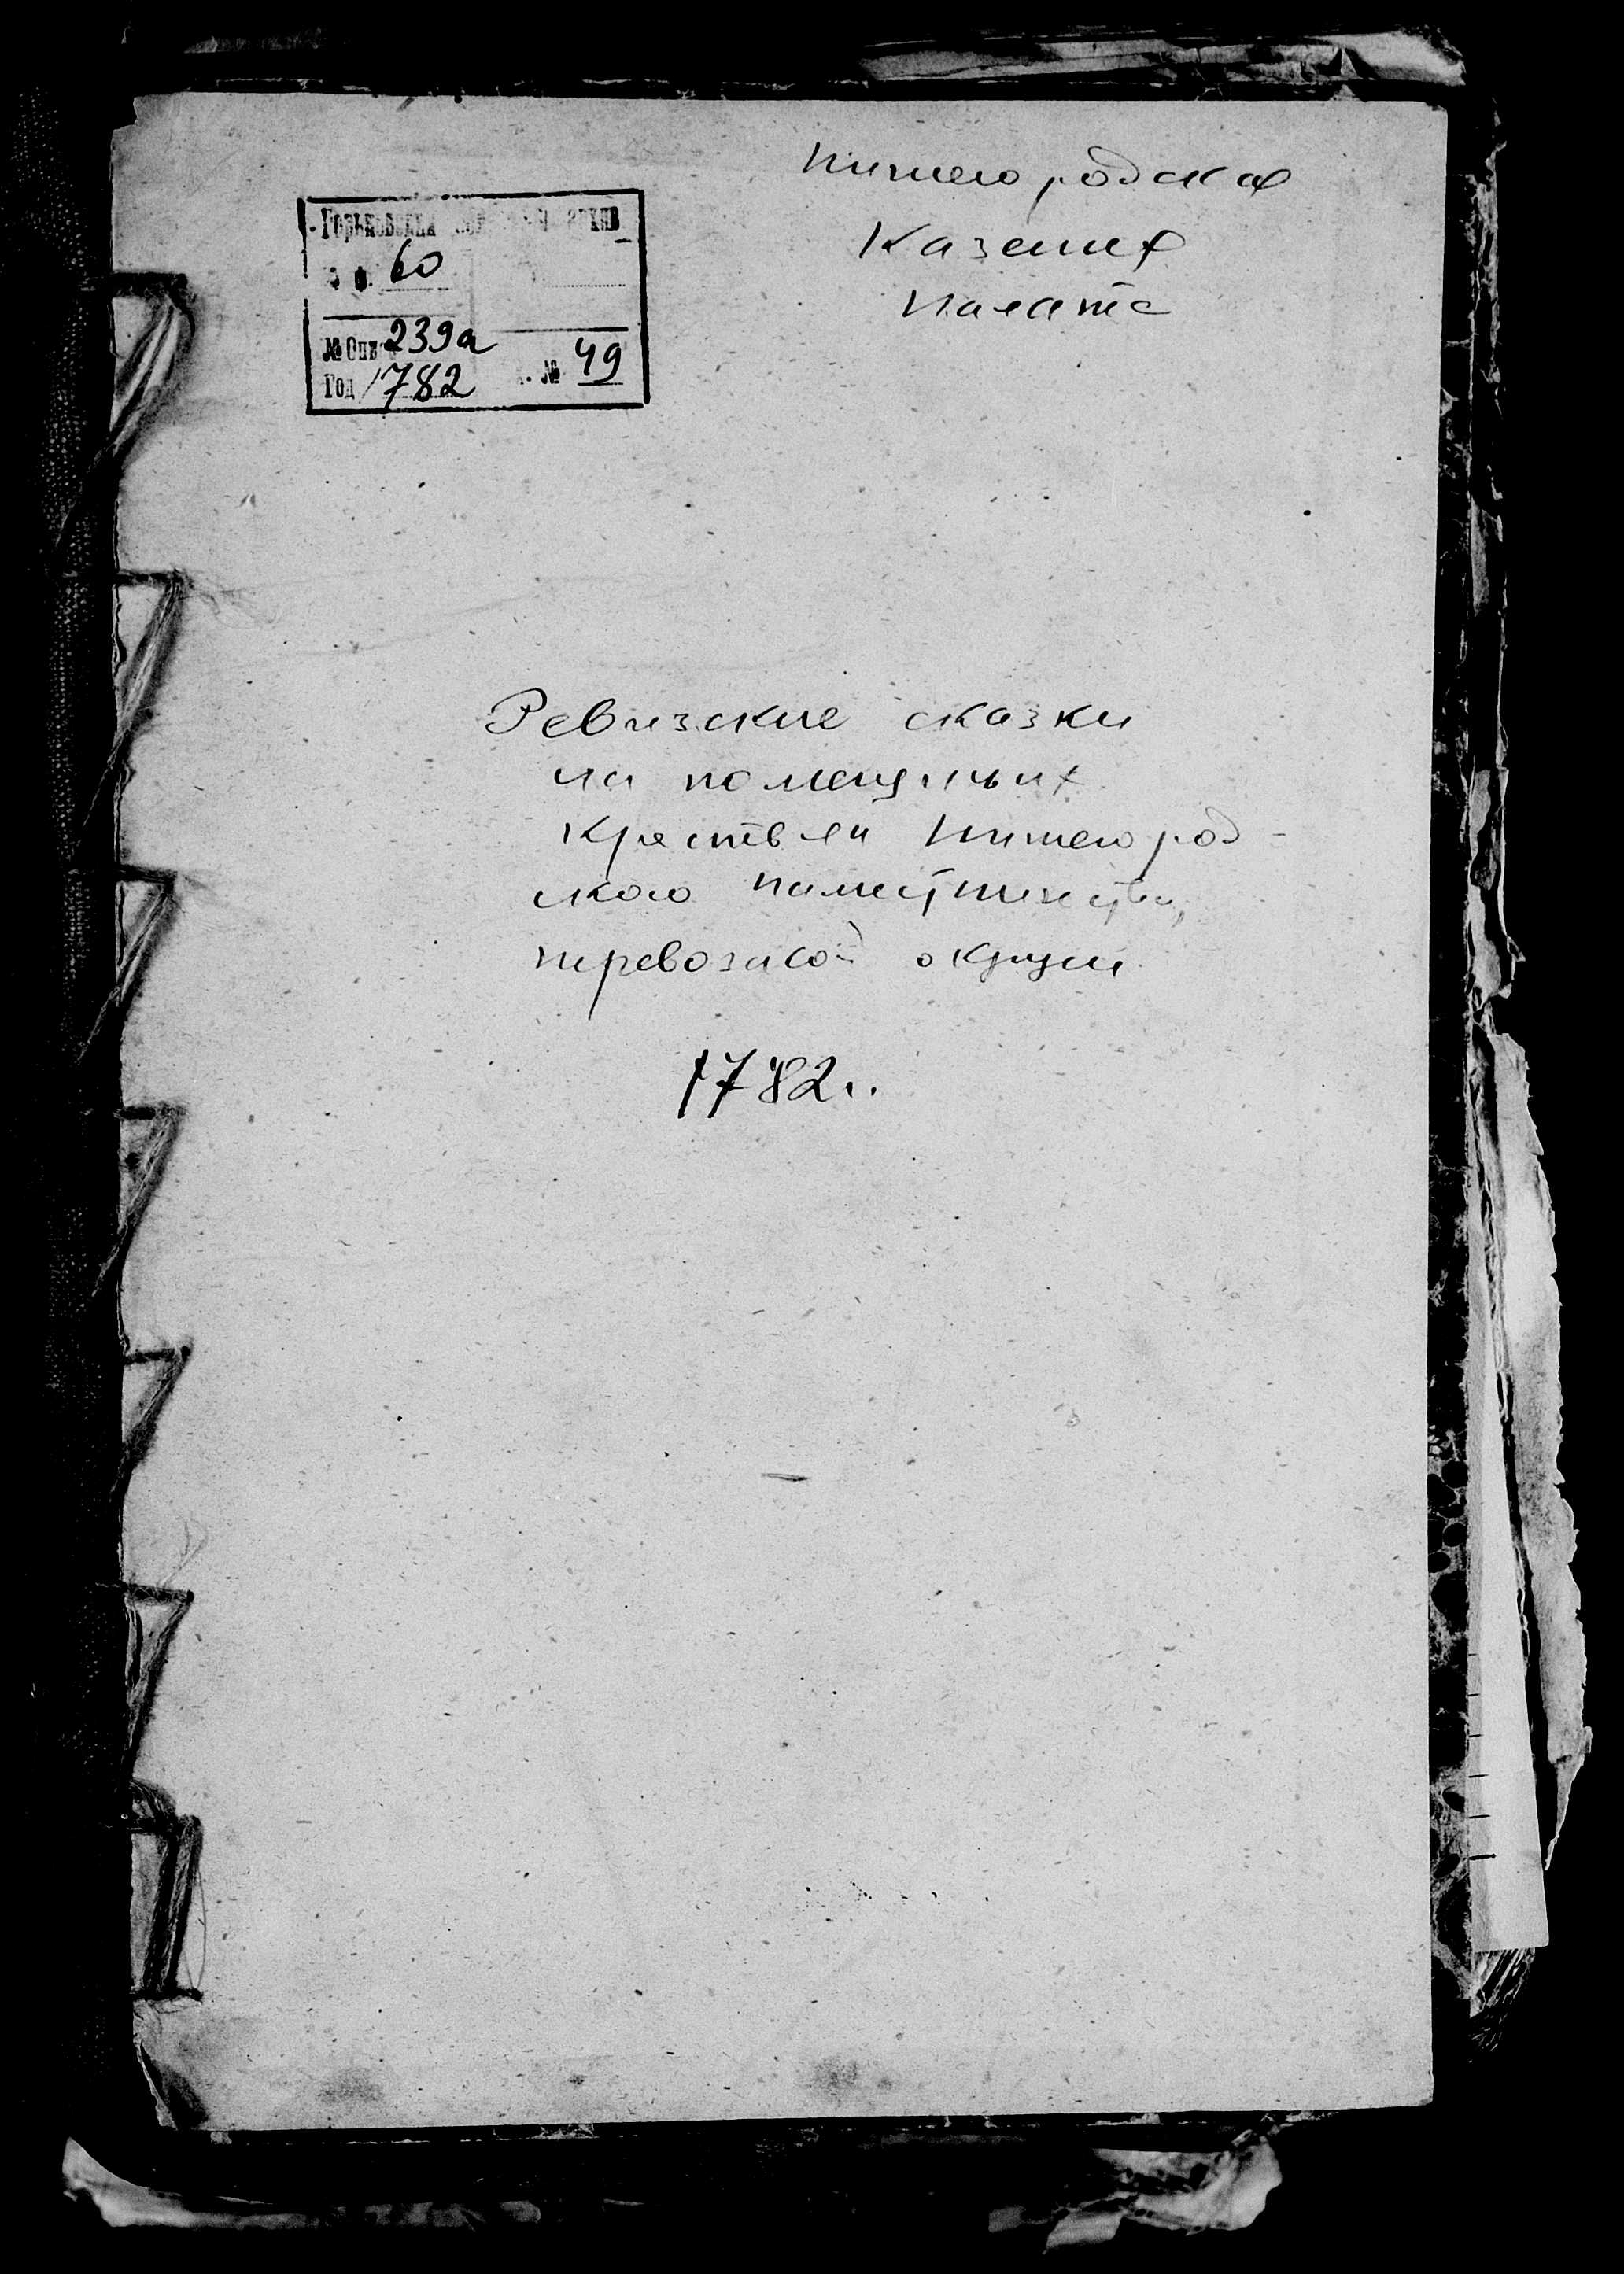 Нижегородская
Казенная
палата
Горьковский архив
ф. 60
№ Опи 239а
Год 1782 № 49
Ревизские сказки
на помещичьих
крестьян Нижегород-
ского наместничества,
перевозской округи
1782 г.